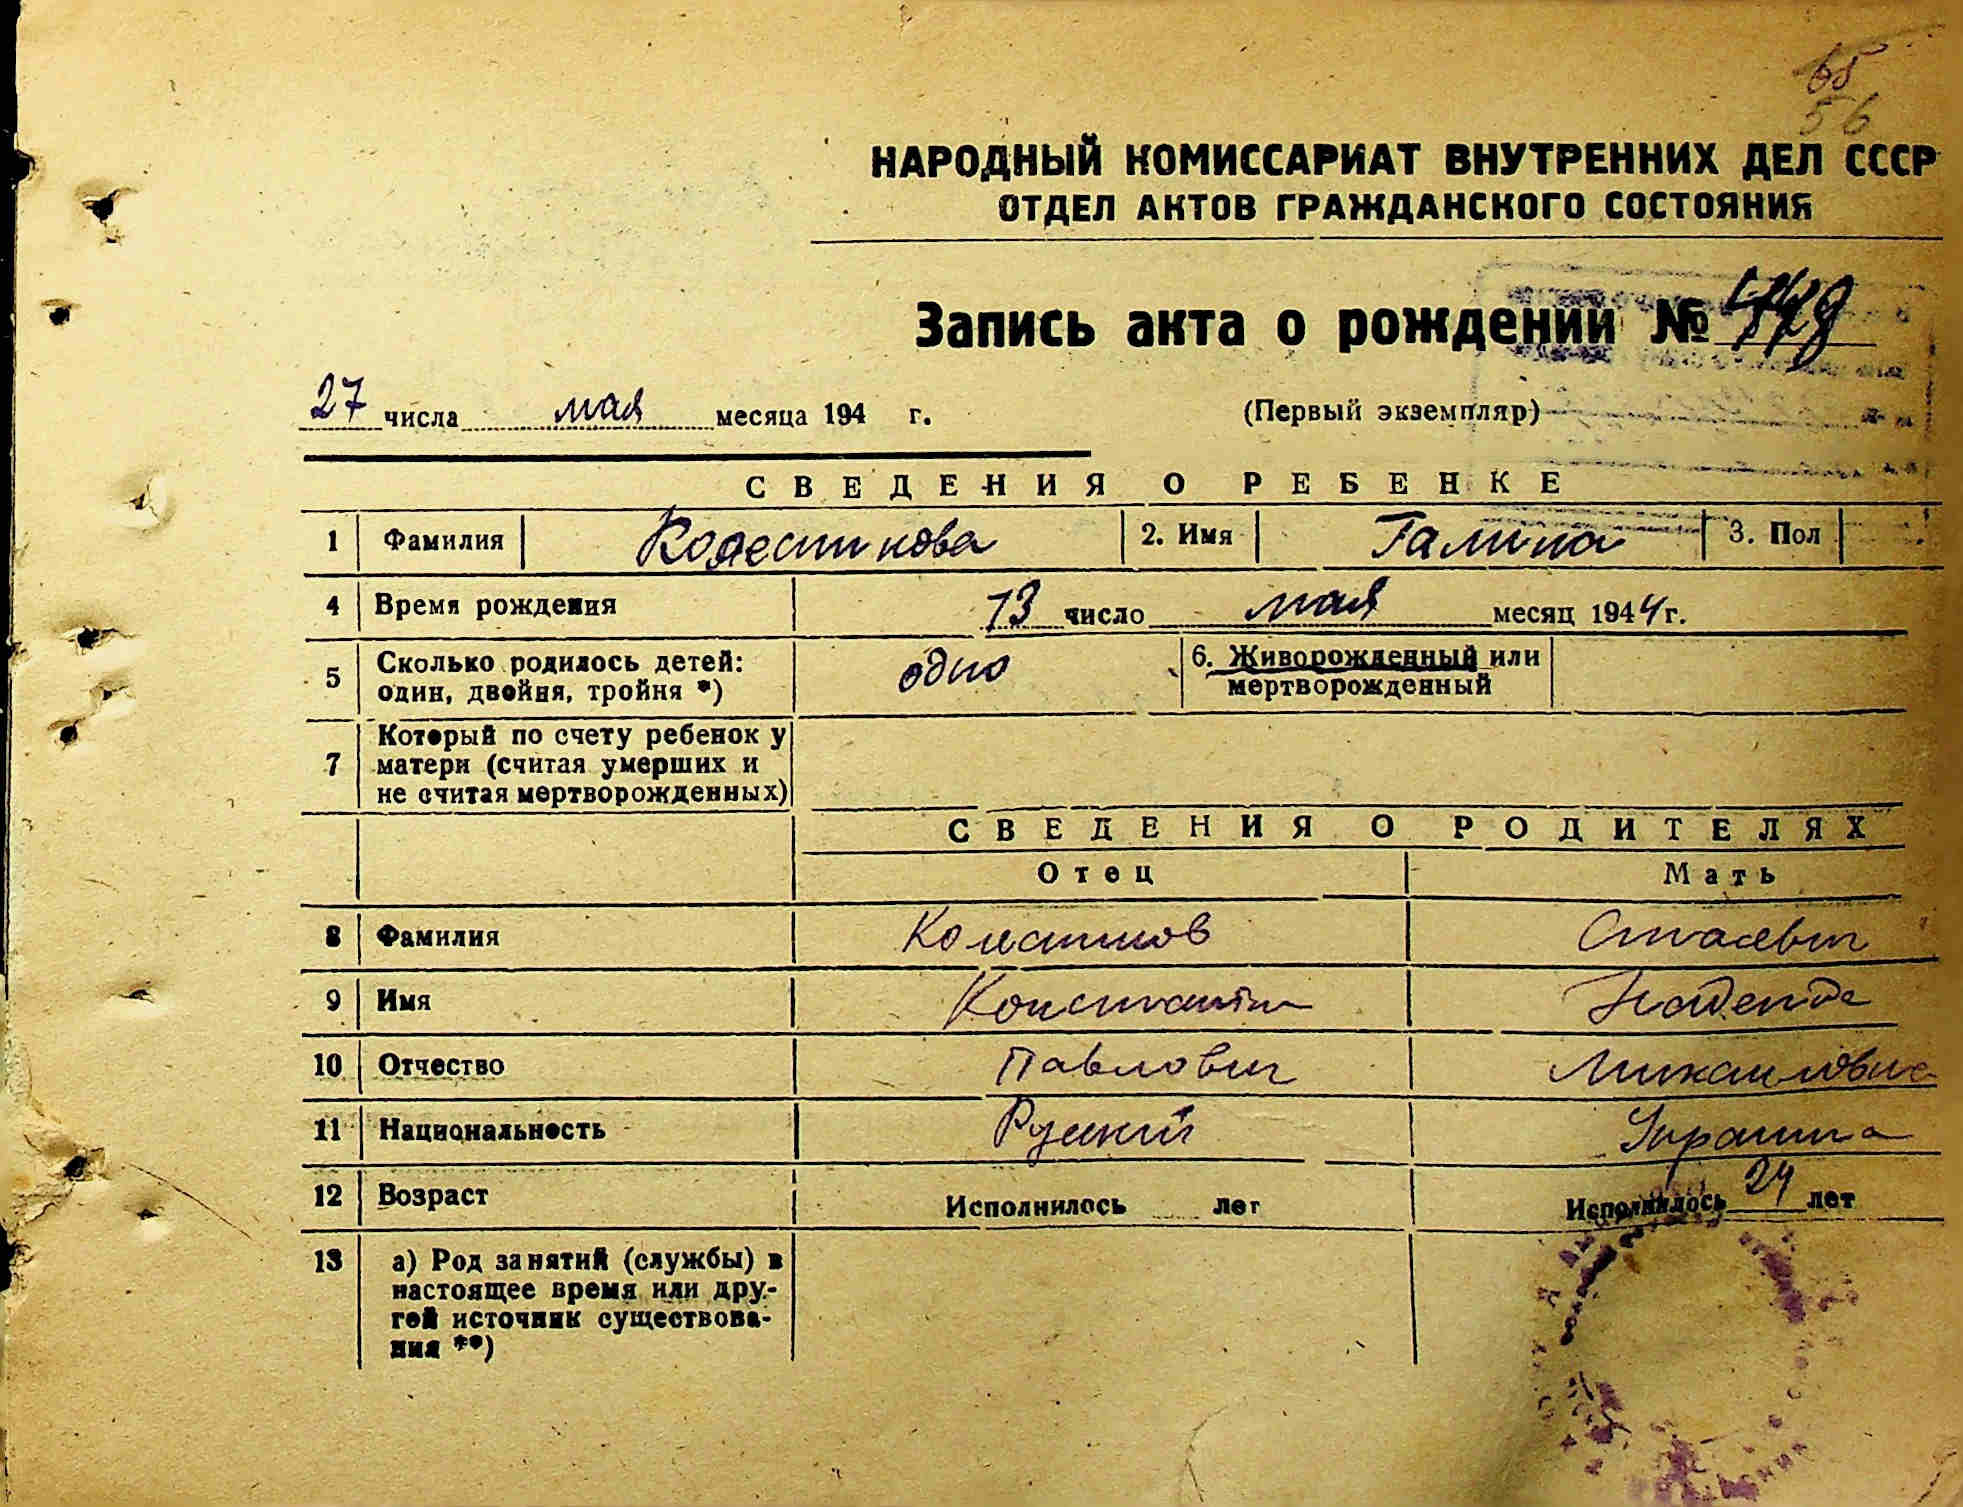 65
56
НАРОДНЫЙ КОМИССАРИАТ ВНУТРЕННИХ ДЕЛ СССР
ОТДЕЛ АКТОВ ГРАЖДАНСКОГО СОСТОЯНИЯ
Запись акта о рождении №
27 числа мая месяца 194 г. (Первый экземпляр)
СВЕДЕНИЯ О РЕБЕНКЕ
1 Фамилия Колестикова 2. Имя Галина 3. Пол
4 Время рождения 13 число мая месяц 1944 г.
5 Сколько родилось детей: один, двойня, тройня *) одно 6. Живорожденный или мертворожденный
7 Который по счету ребенок у матери (считая умерших и не считая мертворожденных)
СВЕДЕНИЯ О РОДИТЕЛЯХ
Отец Мать
8 Фамилия Колестиков Стасевич
9 Имя Константин Надежда
10 Отчество Павлович Михайловна
11 Национальность Русский Украинка
12 Возраст Исполнилось лет Исполнилось 24 лет
13 а) Род занятий (службы) в
настоящее время или дру-
гой источник существова-
ния **)